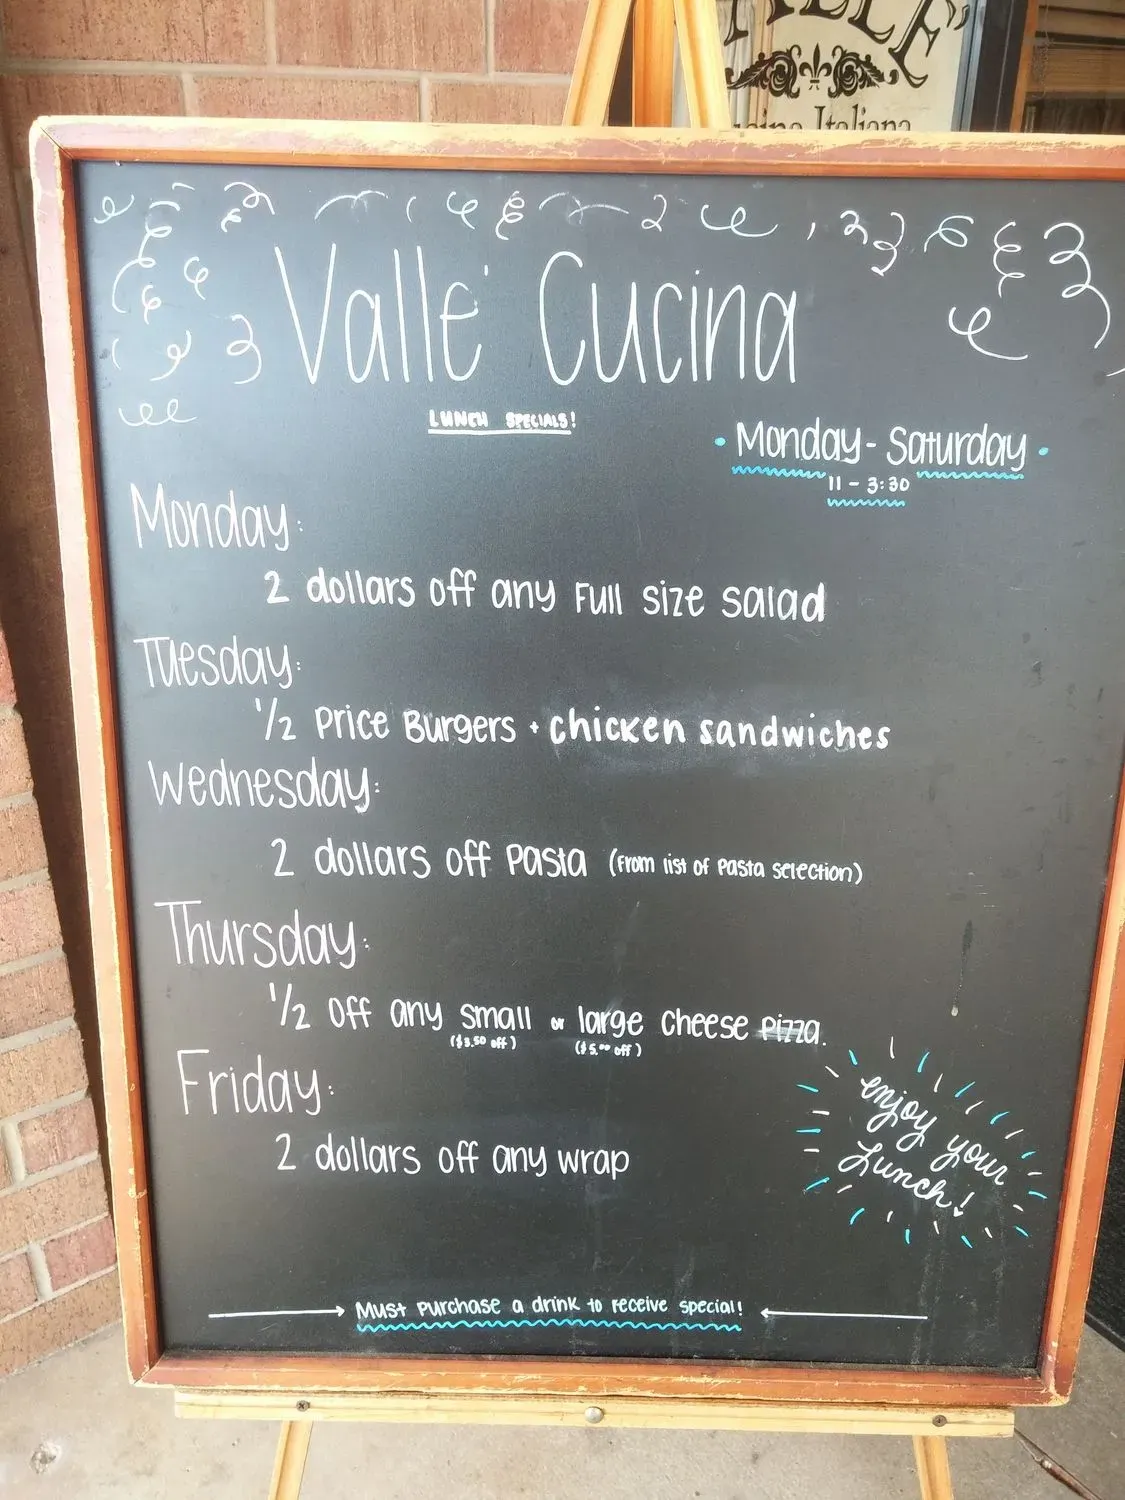 Italiana
Valle' Cucina
LUNCH SPECIALS!
• Monday - Saturday •
11 - 3:30
Monday:
2 dollars off any Full size salad
Tuesday:
1/2 Price Burgers + chicken sandwiches
Wednesday:
2 dollars off Pasta (from list of Pasta selection)
Thursday:
1/2 off any small or large cheese pizza.
($3.50 off) ($5.00 off)
Friday:
2 dollars off any wrap
enjoy your
Lunch!
Must purchase a drink to receive special!